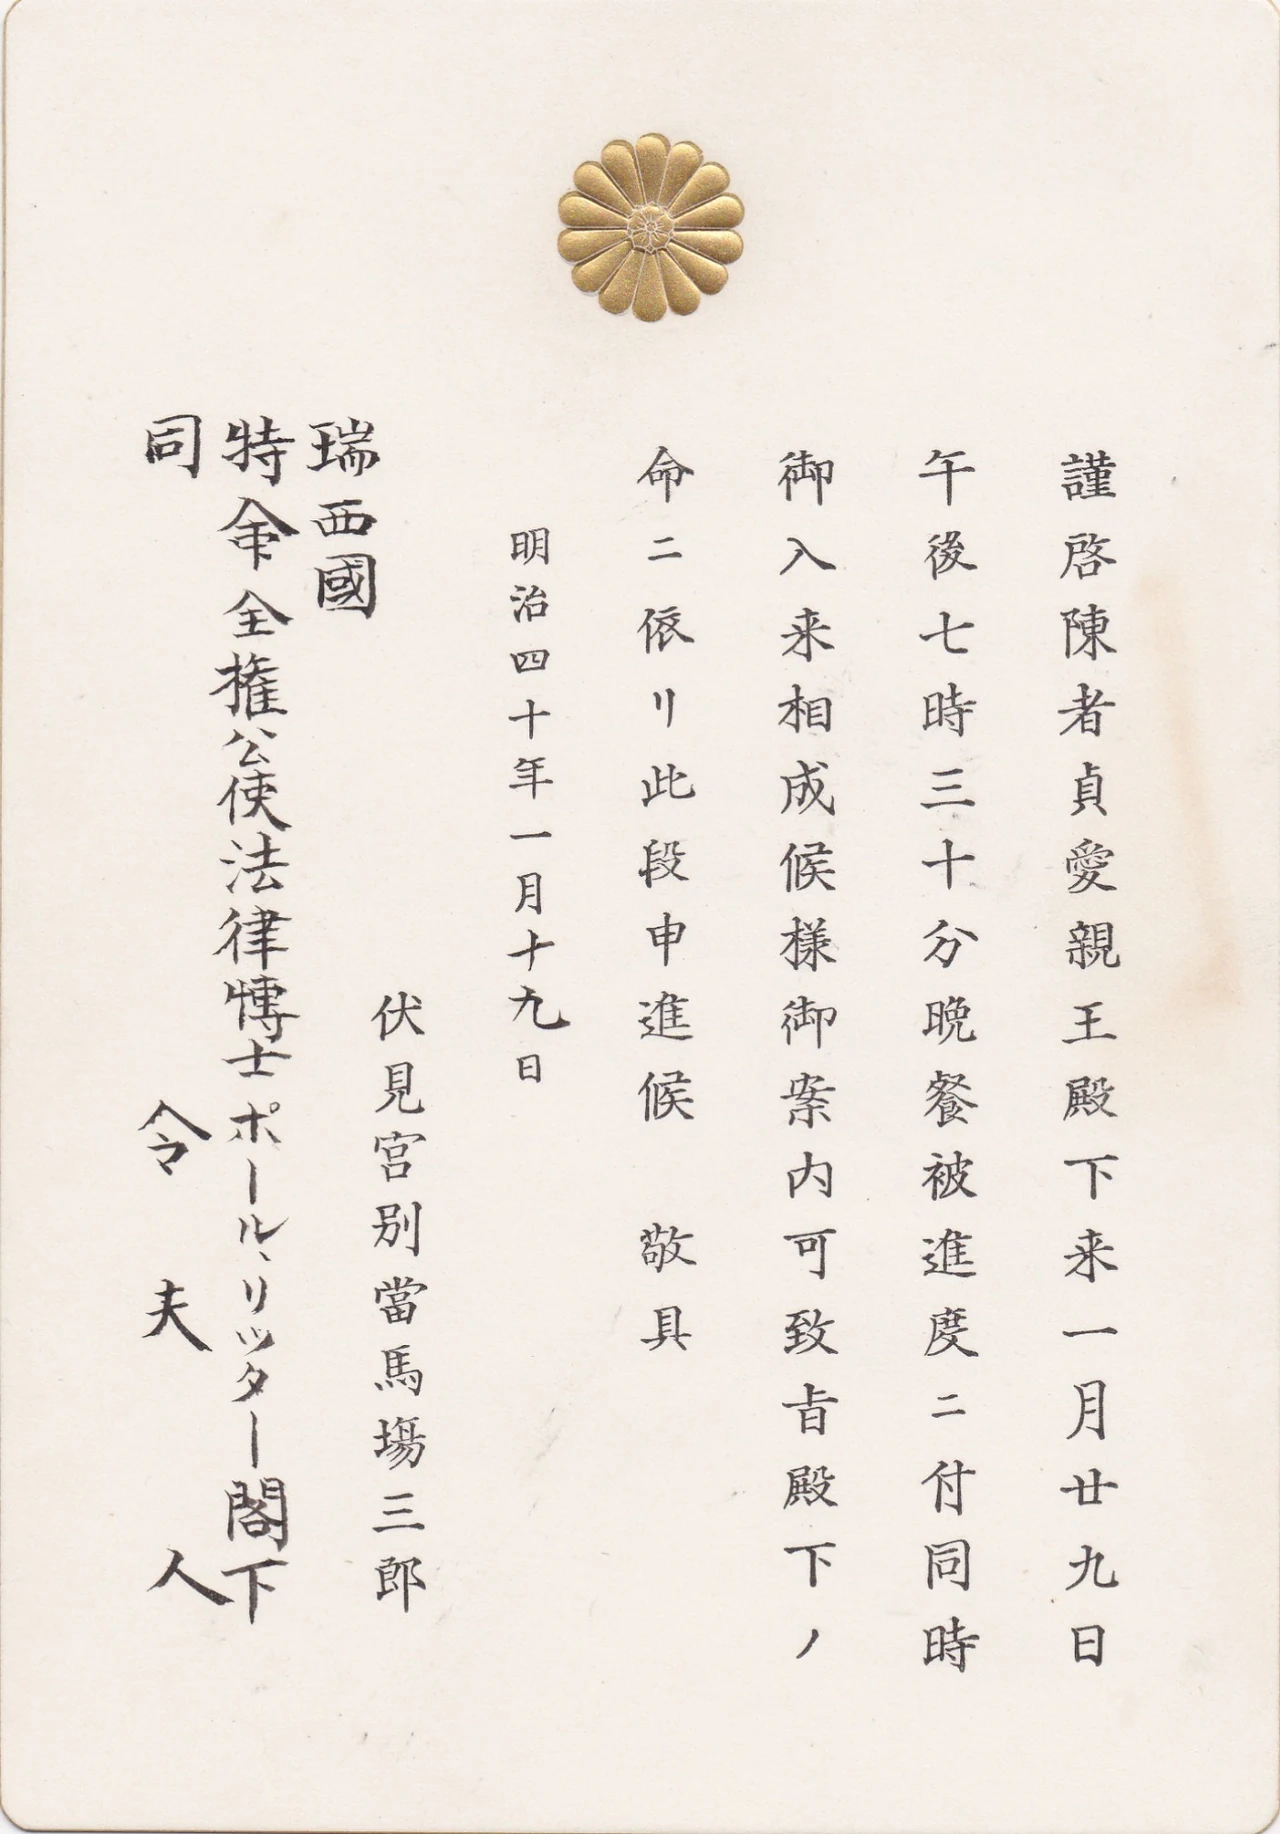 謹啓陳者貞愛親王殿下来一月廿九日
午後七時三十分晩餐被進度ニ付同時
御入来相成候様御案内可致旨殿下ノ
命ニ依リ此段申進候　敬具
明治四十年一月十九日
伏見宮別當馬場三郎
瑞西國
特命全権公使法律博士ポール、リッター閣下
同　令夫人